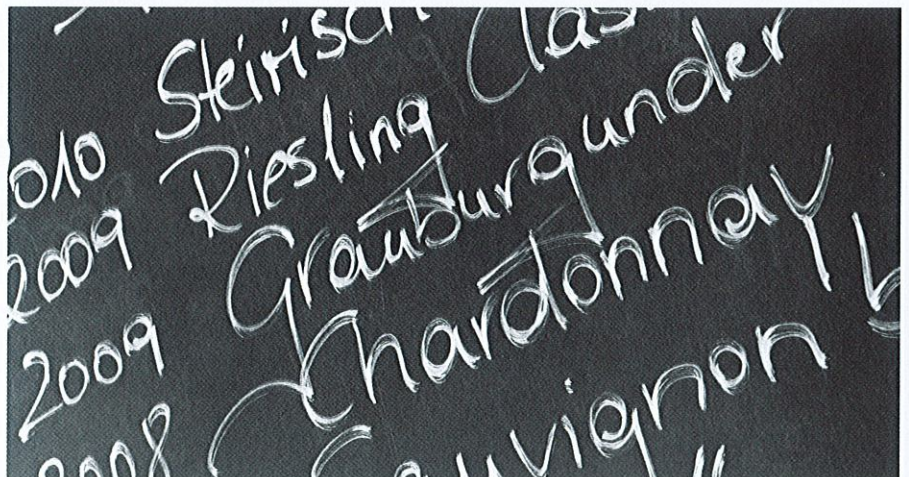 2010 Steirisch Clas
2009 Riesling
2009 Grauburgunder
2008 Chardonnay
Sauvignon